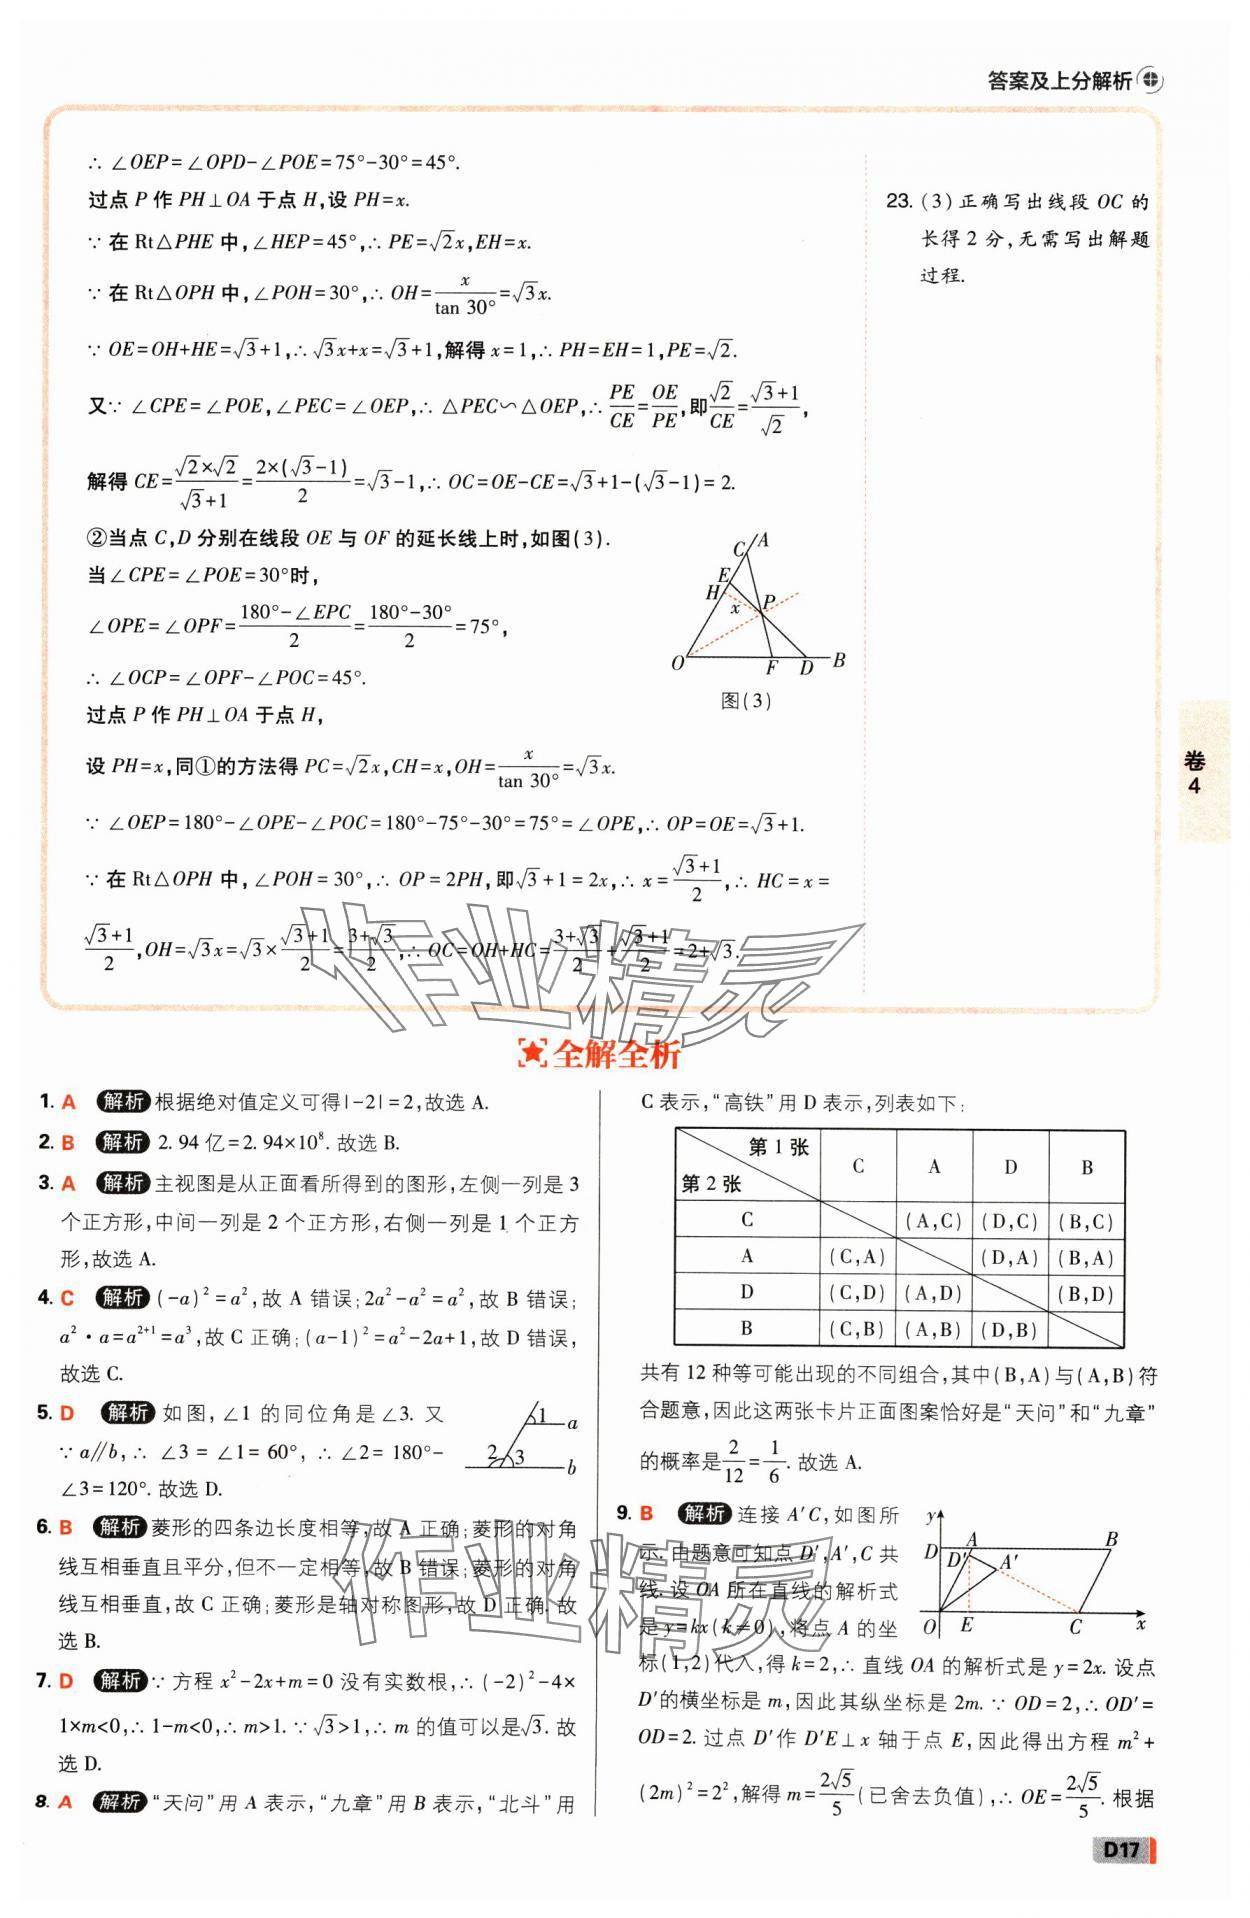 答案及上分解析
∴ ∠OEP=∠OPD-∠POE=75°-30°=45°.
过点 P 作 PH⊥OA 于点 H,设 PH=x.
∵ 在 Rt△PHE 中,∠HEP=45°,∴ PE=√2x,EH=x.
∵ 在 Rt△OPH 中,∠POH=30°,∴ OH=x/tan 30°=√3x.
∵ OE=OH+HE=√3+1,∴ √3x+x=√3+1,解得 x=1,∴ PH=EH=1,PE=√2.
又∵ ∠CPE=∠POE,∠PEC=∠OEP,∴ △PEC∽△OEP,∴ PE/CE=OE/PE,即√2/CE=(√3+1)/√2,
解得 CE=(√2×√2)/(√3+1)=2×(√3-1)/2=√3-1,∴ OC=OE-CE=√3+1-(√3-1)=2.
②当点 C,D 分别在线段 OE 与 OF 的延长线上时,如图(3).
当∠CPE=∠POE=30°时,
∠OPE=∠OPF=(180°-∠EPC)/2=(180°-30°)/2=75°,
∴ ∠OCP=∠OPF-∠POC=45°.
过点 P 作 PH⊥OA 于点 H,
设 PH=x,同①的方法得 PC=√2x,CH=x,OH=x/tan 30°=√3x.
∵ ∠OEP=180°-∠OPE-∠POC=180°-75°-30°=75°=∠OPE,∴ OP=OE=√3+1.
∵ 在 Rt△OPH 中,∠POH=30°,∴ OP=2PH,即√3+1=2x,∴ x=(√3+1)/2,∴ HC=x=
(√3+1)/2,OH=√3x=√3×(√3+1)/2=(3+√3)/2,∴ OC=OH+HC=(3+√3)/2+(√3+1)/2=2+√3.
A
C
E
H
x
P
O
F
D
B
图(3)
23. (3)正确写出线段 OC 的
长得 2 分,无需写出解题
过程.
卷
4
作业精灵
全解全析
1. A 解析 根据绝对值定义可得|-2|=2,故选 A.
2. B 解析 2.94 亿=2.94×10⁸. 故选 B.
3. A 解析 主视图是从正面看所得到的图形,左侧一列是 3
个正方形,中间一列是 2 个正方形,右侧一列是 1 个正方
形,故选 A.
4. C 解析 (-a)²=a²,故 A 错误;2a²-a²=a²,故 B 错误;
a²·a=a²⁺¹=a³,故 C 正确;(a-1)²=a²-2a+1,故 D 错误,
故选 C.
5. D 解析 如图,∠1 的同位角是∠3. 又
∵ a∥b,∴ ∠3=∠1=60°,∴ ∠2=180°-
∠3=120°. 故选 D.
1
a
2
3
b
6. B 解析 菱形的四条边长度相等,故 A 正确;菱形的对角
线互相垂直且平分,但不一定相等,故 B 错误;菱形的对角
线互相垂直,故 C 正确;菱形是轴对称图形,故 D 正确. 故
选 B.
7. D 解析 ∵ 方程 x²-2x+m=0 没有实数根,∴ (-2)²-4×
1×m<0,∴ 1-m<0,∴ m>1. ∵ √3>1,∴ m 的值可以是√3. 故
选 D.
8. A 解析 “天问”用 A 表示,“九章”用 B 表示,“北斗”用
C 表示,“高铁”用 D 表示,列表如下:
第 1 张 C A D B
第 2 张
C (A,C) (D,C) (B,C)
A (C,A) (D,A) (B,A)
D (C,D) (A,D) (B,D)
B (C,B) (A,B) (D,B)
共有 12 种等可能出现的不同组合,其中(B,A)与(A,B)符
合题意,因此这两张卡片正面图案恰好是“天问”和“九章”
的概率是2/12=1/6. 故选 A.
9. B 解析 连接 A′C,如图所
示. 由题意可知点 D′,A′,C 共
线. 设 OA 所在直线的解析式
是 y=kx(k≠0),将点 A 的坐
标(1,2)代入,得 k=2,∴ 直线 OA 的解析式是 y=2x. 设点
D′的横坐标是 m,因此其纵坐标是 2m. ∵ OD=2,∴ OD′=
OD=2. 过点 D′作 D′E⊥x 轴于点 E,因此得出方程 m²+
(2m)²=2²,解得 m=2√5/5(已舍去负值),∴ OE=2√5/5. 根据
y
A
B
D
D′
A′
O
E
C
x
作业精灵
D17